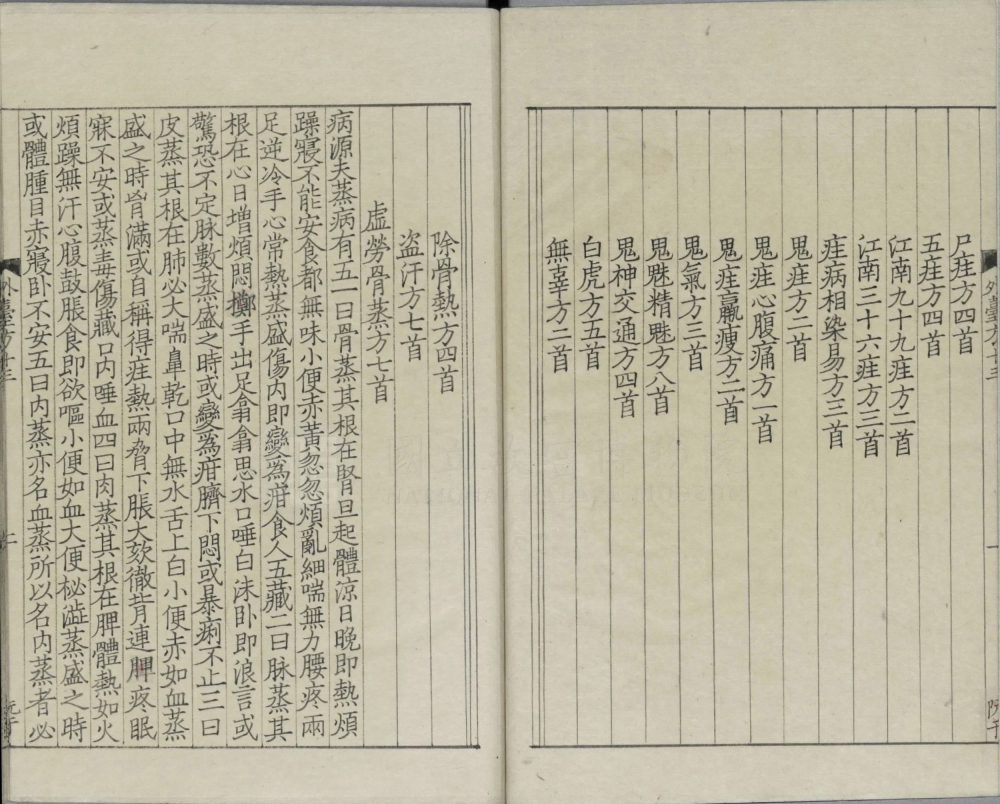 尸疰方四首
五疰方四首
江南九十九疰方二首
江南三十六疰方三首
疰病相染易方三首
鬼疰方二首
鬼疰心腹痛方一首
鬼疰羸瘦方二首
鬼氣方三首
鬼魅精魅方八首
鬼神交通方四首
白虎方五首
無辜方二首
除骨熱方四首
盜汗方七首
虛勞骨蒸方七首
病源夫蒸病有五一曰骨蒸其根在腎旦起體涼日晚即熱煩
躁寢不能安食都無味小便赤黃忽忽煩亂細喘無力腰疼兩
足逆冷手心常熱蒸盛傷内即變為疳食人五藏二曰脉蒸其
根在心日增煩悶擲手出足翕翕思水口唾白沫卧即浪言或
驚恐不定脉數蒸盛之時或變為疳臍下悶或暴痢不止三曰
皮蒸其根在肺必大喘鼻乾口中無水舌上白小便赤如血蒸
盛之時胷滿或自稱得疰熱兩脅下脹大欬徹背連胛疼眠
寐不安或蒸毒傷藏口内唾血四曰肉蒸其根在脾體熱如火
煩躁無汗心腹鼓脹食即欲嘔小便如血大便秘澁蒸盛之時
或體腫目赤寢卧不安五曰内蒸亦名血蒸所以名内蒸者必